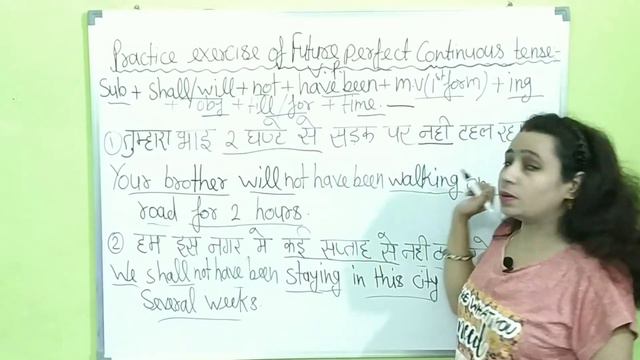 Practice exercise of Future perfect Continuous tense-
V.I.P
Sub + shall/will + not + have been + m.v(1st form) + ing
+ obj + till/for + time.
① तुम्हारा भाई २ घण्टे से सड़क पर नही टहल रहा
Your brother will not have been walking on
road for 2 hours.
② हम इस नगर मे कई सप्ताह से नही
We shall not have been staying in this city
Several weeks